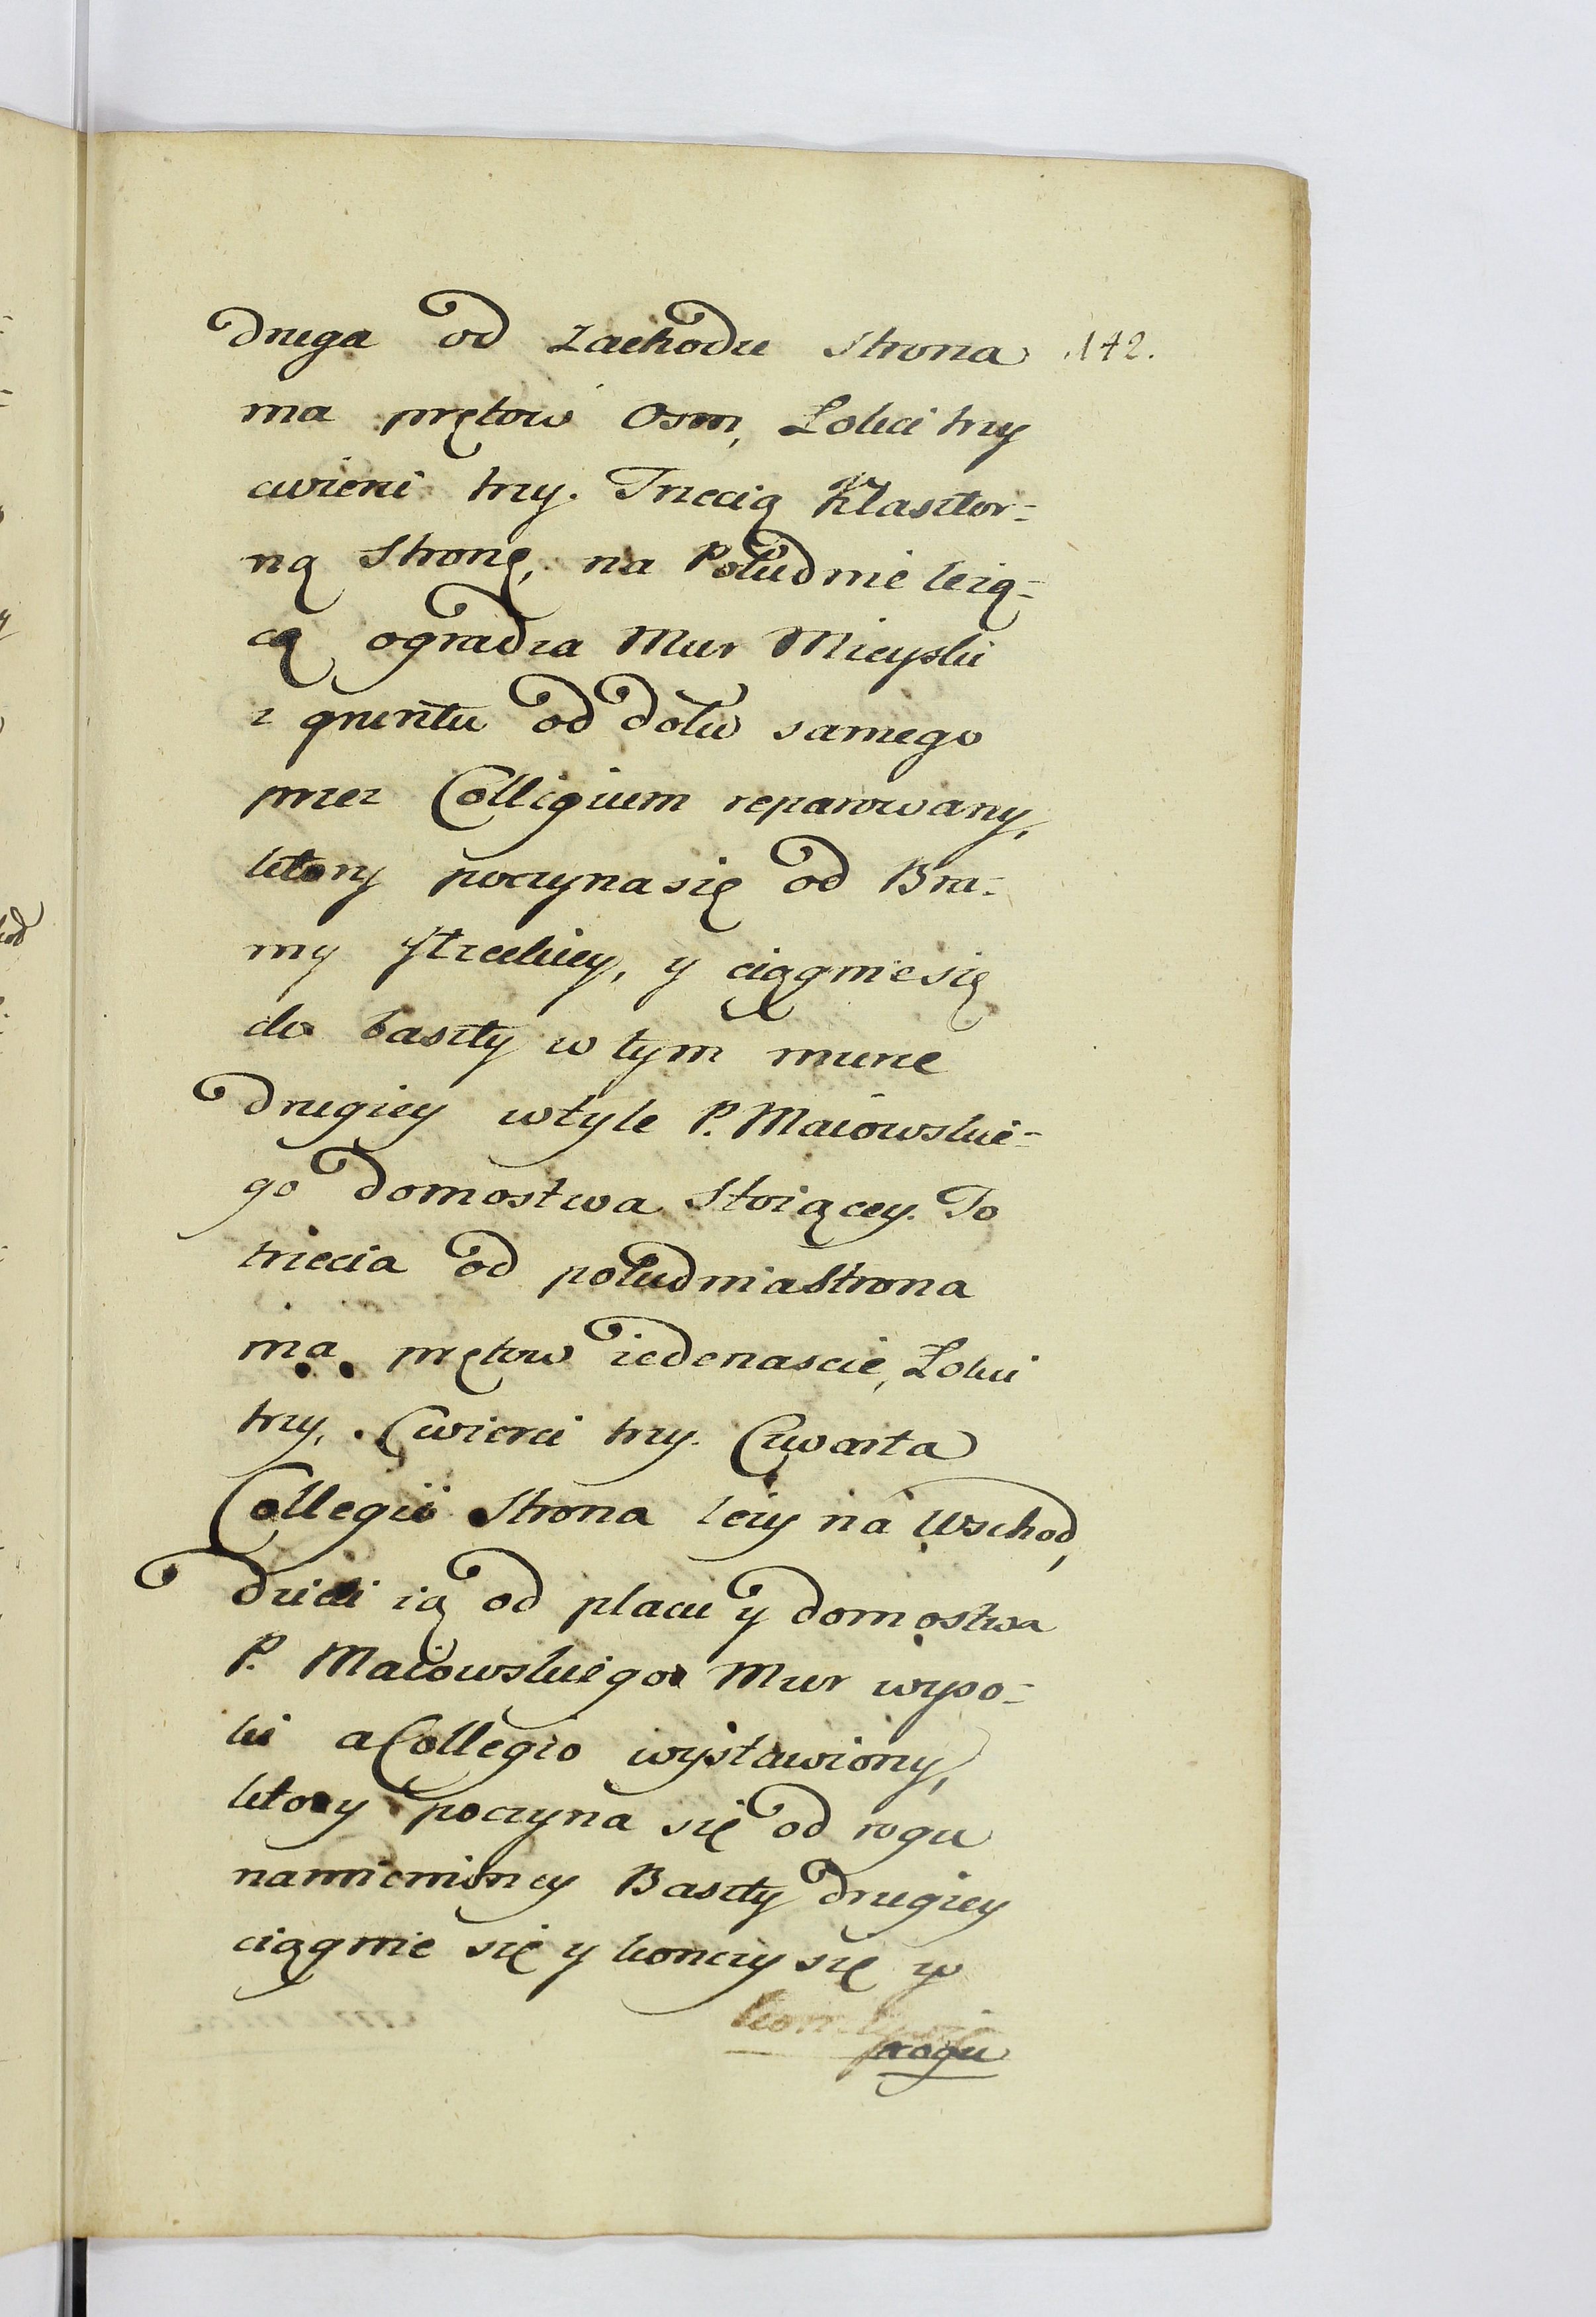 druga od Zachodu strona 142.
ma prętow Osm, Łokci trzy
cwierci trzy. Trzecią Klasztor=
ną Stronę, na Południe leżą=
cą ogradza Mur Mieyski
z gruntu od dołu samego
przez Collegium reparowany,
ktory poczyna się od Bra=
my Krzeckiey, y ciągnie się
do baszty w tym murze
drugiey w tyle P. Maiowskie=
go domostwa stoiącey. To
trzecia od południa Strona
ma prętow iedenascie, Łokci
trzy, Cwierci trzy. Czwarta
Collegii Strona leży na Wschod,
dzieli ią od placu y domostwa
P. Maiowskiego Mur wyso=
ki a Collegio wystawiony,
ktory poczyna się od rogu
namienioney Baszty drugiey
ciągnie się y konczy się w
rogu